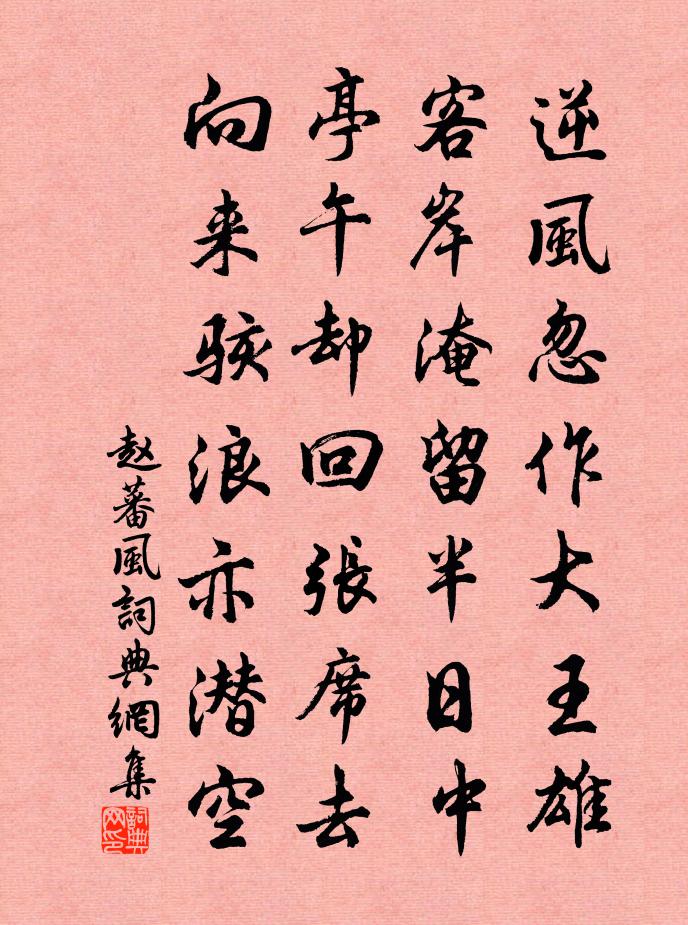 逆風忽作大王雄
客岸淹留半日中
亭午却回張席去
向来駭浪亦潜空
赵蕃風詞典網集
詞典网印